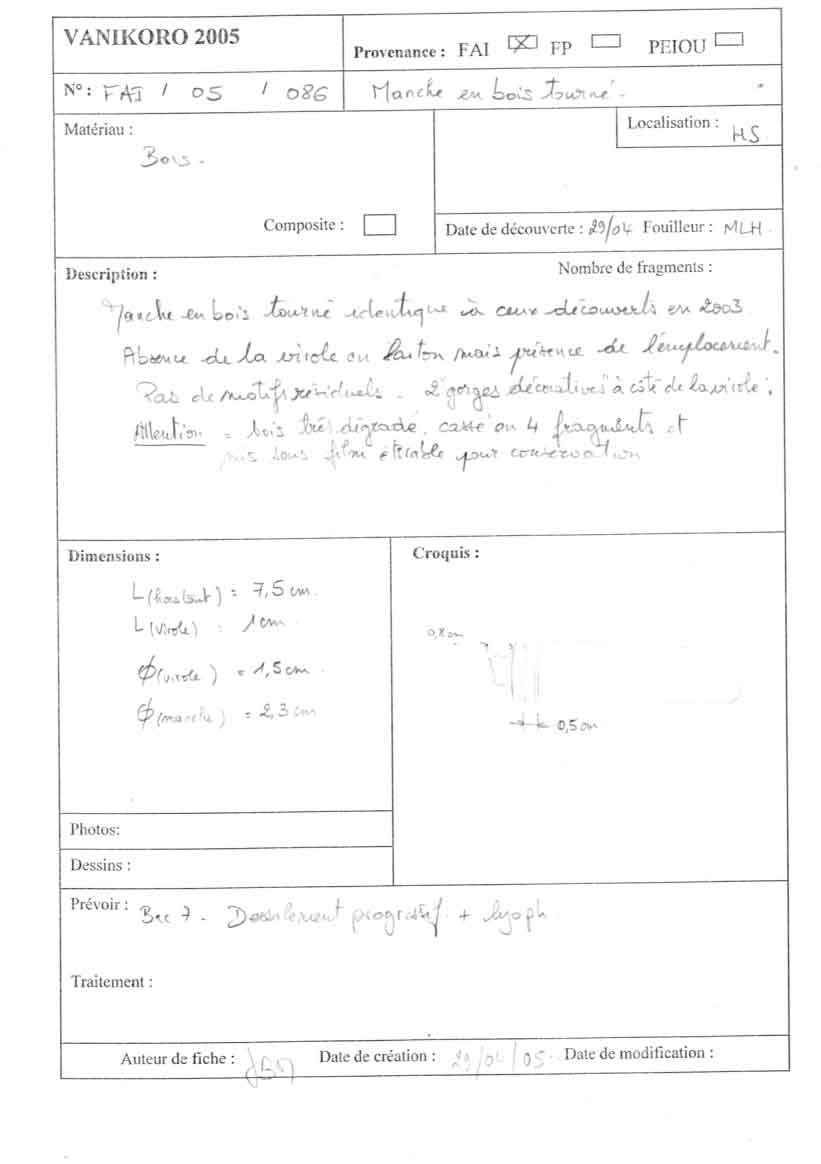 VANIKORO 2005
Provenance : FAI ☒ FP ☐ PEIOU ☐
N° : FAI / 05 / 086
Manche en bois tourné.
Matériau :
Bois.
Composite : ☐
Localisation : HS
Date de découverte : 29/04 Fouilleur : MLH.
Description :
Nombre de fragments :
Manche en bois tourné identique à ceux découverts en 2003.
Absence de la virole en laiton mais présence de l'emplacement.
Pas de motifs résiduels. 2 "gorges décoratives" à côté de la virole.
Attention = bois très dégradé, cassé en 4 fragments et
mis sous film étirable pour conservation
Dimensions :
L (hors tout) = 7,5 cm.
L (virole) = 1 cm.
ϕ (virole) = 1,5 cm.
ϕ (manche) = 2,3 cm
Croquis :
0,8 cm
0,5 cm
Photos:
Dessins :
Prévoir : Bac 7. Dessalement progressif + lyoph.
Traitement :
Auteur de fiche : Date de création : 29/04/05 Date de modification :